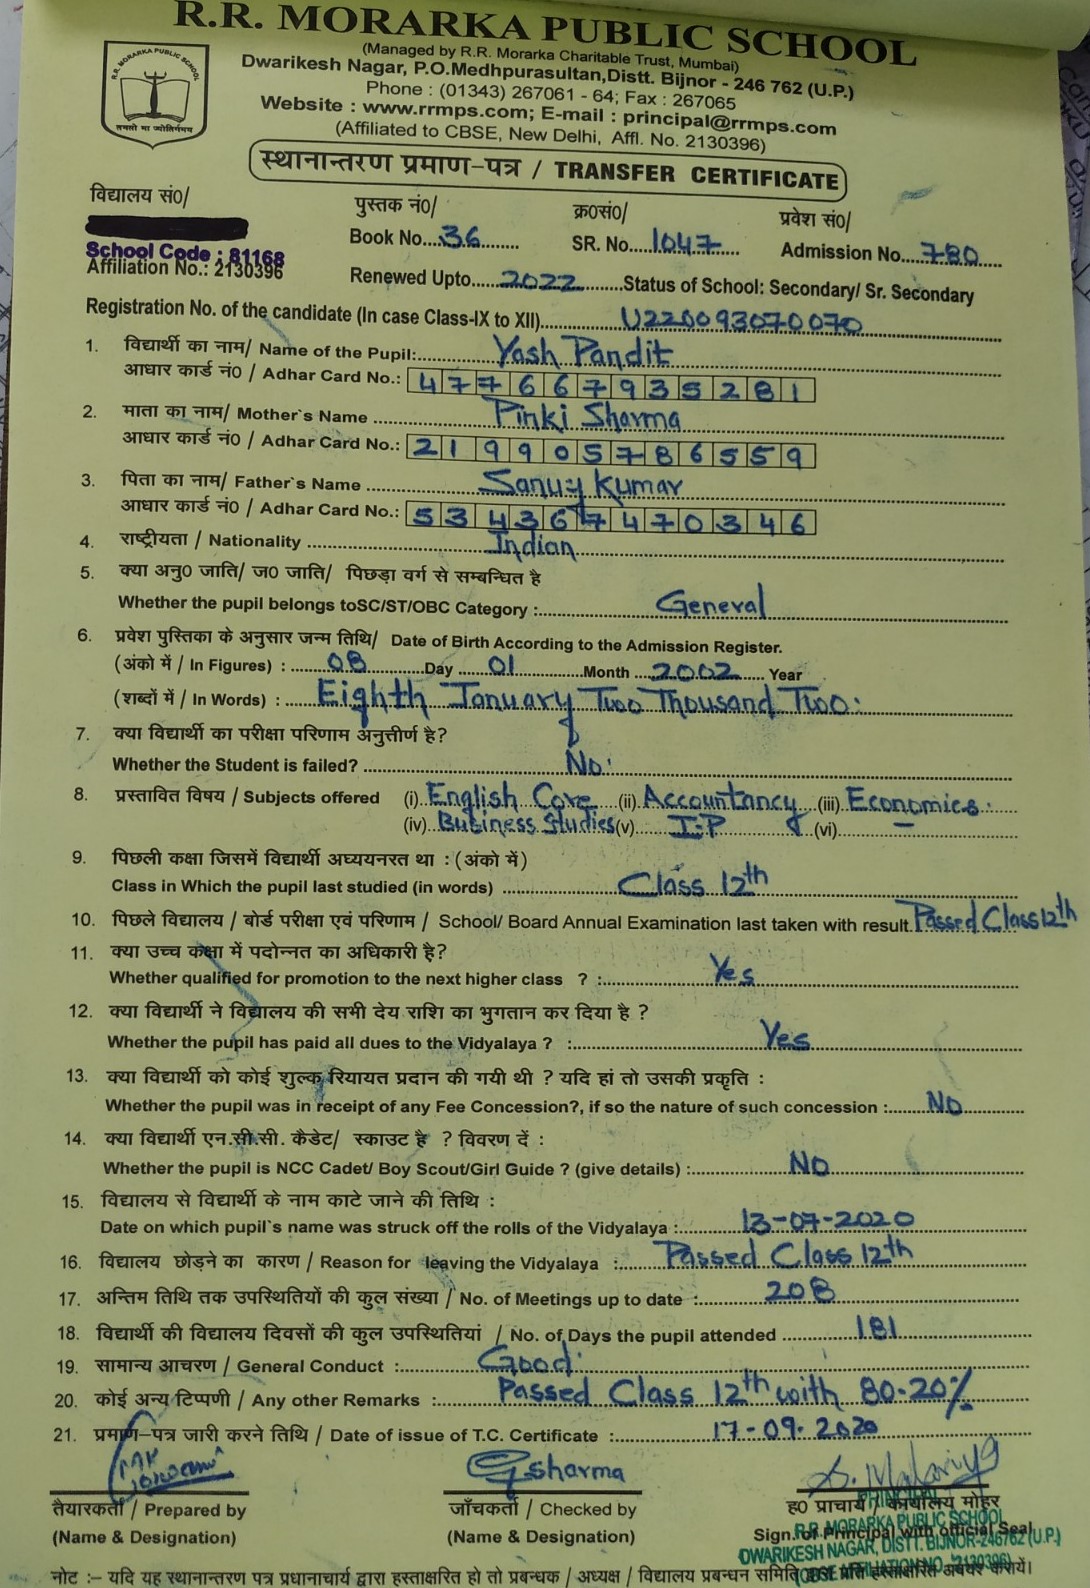 R.R. MORARKA PUBLIC SCHOOL
(Managed by R.R. Morarka Charitable Trust, Mumbai)
Dwarikesh Nagar, P.O.Medhpurasultan,Distt. Bijnor - 246 762 (U.P.)
Phone : (01343) 267061 - 64; Fax : 267065
Website : www.rrmps.com; E-mail : principal@rrmps.com
(Affiliated to CBSE, New Delhi, Affl. No. 2130396)
R.R. MORARKA PUBLIC SCHOOL
तमसो मा ज्योतिर्गमय
स्थानान्तरण प्रमाण-पत्र / TRANSFER CERTIFICATE
विद्यालय सं०/ पुस्तक नं०/ क्र०सं०/ प्रवेश सं०/
Book No....36........ SR. No...1047..... Admission No...780....
School Code : 81168
Affiliation No.: 2130396 Renewed Upto.....2022.......Status of School: Secondary/ Sr. Secondary
Registration No. of the candidate (In case Class-IX to XII)..............U220093070070
1. विद्यार्थी का नाम/ Name of the Pupil:............Yash Pandit
आधार कार्ड नं० / Adhar Card No.: 477667935281
2. माता का नाम/ Mother`s Name ..................Pinki Sharma
आधार कार्ड नं० / Adhar Card No.: 219905786559
3. पिता का नाम/ Father`s Name ..................Sanjay Kumar
आधार कार्ड नं० / Adhar Card No.: 534367470346
4. राष्ट्रीयता / Nationality ..........................Indian
5. क्या अनु० जाति/ ज० जाति/ पिछड़ा वर्ग से सम्बन्धित है
Whether the pupil belongs toSC/ST/OBC Category :..............General
6. प्रवेश पुस्तिका के अनुसार जन्म तिथि/ Date of Birth According to the Admission Register.
(अंको में / In Figures) : .....08.......Day ....01.......Month ...2002..... Year
(शब्दों में / In Words) : ....Eighth January Two Thousand Two.
7. क्या विद्यार्थी का परीक्षा परिणाम अनुत्तीर्ण है?
Whether the Student is failed? ..........................No.
8. प्रस्तावित विषय / Subjects offered (i) English Core (ii) Accountancy (iii) Economics.
(iv) Business Studies (v) I.P (vi) –
9. पिछली कक्षा जिसमें विद्यार्थी अघ्ययनरत था : (अंको में)
Class in Which the pupil last studied (in words) ..............Class 12th
10. पिछले विद्यालय / बोर्ड परीक्षा एवं परिणाम / School/ Board Annual Examination last taken with result Passed Class 12th
11. क्या उच्च कक्षा में पदोन्नत का अधिकारी है?
Whether qualified for promotion to the next higher class ? :..............Yes
12. क्या विद्यार्थी ने विद्यालय की सभी देय राशि का भुगतान कर दिया है ?
Whether the pupil has paid all dues to the Vidyalaya ? :..................Yes
13. क्या विद्यार्थी को कोई शुल्क रियायत प्रदान की गयी थी ? यदि हां तो उसकी प्रकृति :
Whether the pupil was in receipt of any Fee Concession?, if so the nature of such concession :.......No
14. क्या विद्यार्थी एन.सी.सी. कैडेट/ स्काउट है ? विवरण दें :
Whether the pupil is NCC Cadet/ Boy Scout/Girl Guide ? (give details) :..............No
15. विद्यालय से विद्यार्थी के नाम काटे जाने की तिथि :
Date on which pupil`s name was struck off the rolls of the Vidyalaya :..........13-07-2020
16. विद्यालय छोड़ने का कारण / Reason for leaving the Vidyalaya :......Passed Class 12th
17. अन्तिम तिथि तक उपस्थितियों की कुल संख्या / No. of Meetings up to date :..........208
18. विद्यार्थी की विद्यालय दिवसों की कुल उपस्थितियां / No. of Days the pupil attended ..........181
19. सामान्य आचरण / General Conduct :............Good.
20. कोई अन्य टिप्पणी / Any other Remarks :........Passed Class 12th with 80.20%
21. प्रमाण-पत्र जारी करने तिथि / Date of issue of T.C. Certificate :..............17-09-2020
Goswami G Sharma
तैयारकर्ता / Prepared by जाँचकर्ता / Checked by ह० प्राचार्य / कार्यालय मोहर
(Name & Designation) (Name & Designation) Sign. of Principal with official Seal
PRINCIPAL
R.R. MORARKA PUBLIC SCHOOL
DWARIKESH NAGAR, DISTT. BIJNOR-246762 (U.P.)
(CBSE AFFILIATION NO. 2130396)
नोट :– यदि यह स्थानान्तरण पत्र प्रधानाचार्य द्वारा हस्ताक्षरित हो तो प्रबन्धक / अध्यक्ष / विद्यालय प्रबन्धन समिति द्वारा प्रति हस्ताक्षरित अवश्य करायें।